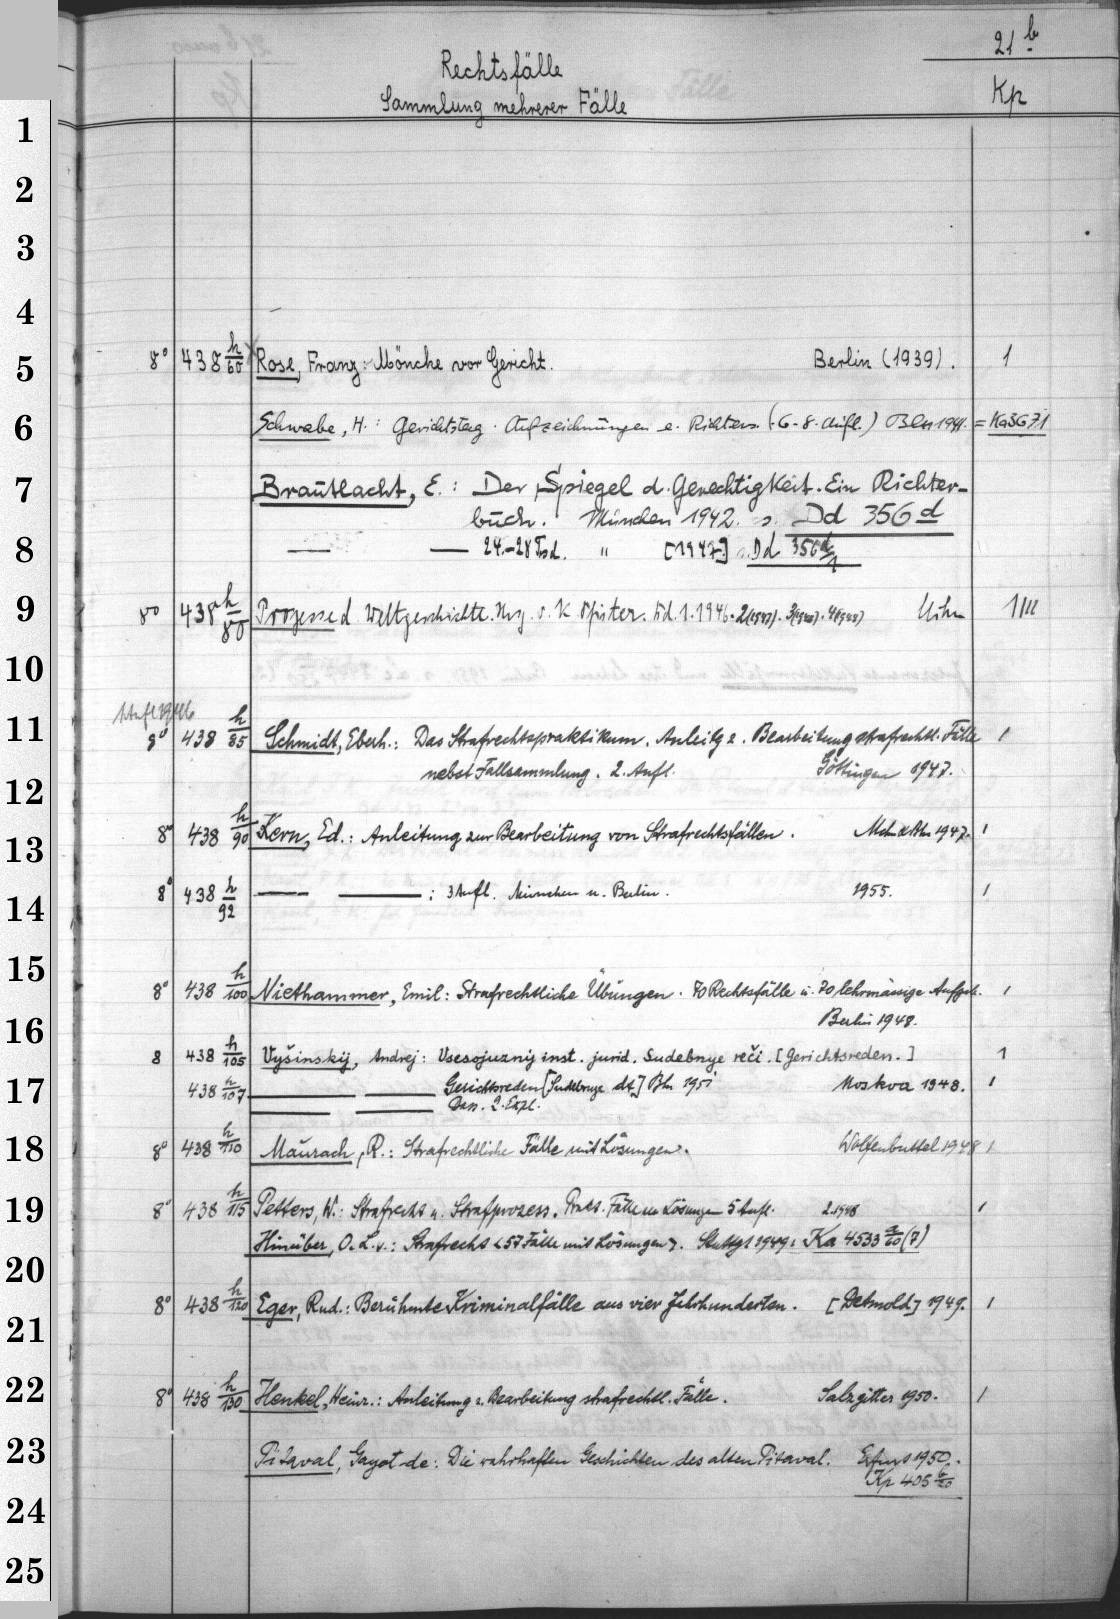 21 b
Rechtsfälle
Kp
Sammlung mehrerer Fälle
1
2
3
4
5 8° 438 h/60 Rose, Franz: Mönche vor Gericht. Berlin (1939). 1
6 Schwabe, H.: Gerichtstag. Aufzeichnungen e. Richters. (6-8. Aufl.) Bln 1941. = Ka 3671
7 Brautlacht, E.: Der Spiegel d. Gerechtigkeit. Ein Richter-
buch. München 1942. s. Dd 356 d
8 — — 24.-28 Tsd. " [1947] s. Dd 356 d/1
9 8° 438 h/80 Prozesse d. Weltgeschichte. Hrsg. v. K. Pfister. Bd. 1. 1946. 2(1947). 3(1948). 4(1948)
10
1. Aufl. 1946
11 8° 438 h/85 Schmidt, Eberh.: Das Strafrechtspraktikum. Anleitg z. Bearbeitung strafrechtl. Fälle 1
nebst Fallsammlung. 2. Aufl. Göttingen 1947.
12
13 8° 438 h/90 Kern, Ed.: Anleitung zur Bearbeitung von Strafrechtsfällen. 1947. 1
14 8° 438 h/92 — — : 3 Aufl. München u. Berlin. 1955. 1
15 8° 438 h/100 Niethammer, Emil: Strafrechtliche Übungen. 70 Rechtsfälle u. 70 lehrmässige Aufgab. 1
16 Berlin 1948.
8 438 h/105 Vyšinskij, Andrej: Vsesojuznij inst. jurid. Sudebnye reči. [Gerichtsreden.] 1
17 438 h/107 — — Gerichtsreden [Sudebnye dt.] Bln 1951 Moskva 1948. 1
— — Dass. 2. Expl.
18 8° 438 h/110 Maurach, R.: Strafrechtliche Fälle mit Lösungen. Wolfenbüttel 1948 1
19 8° 438 h/115 Petters, W.: Strafrecht u. Strafprozess. Pract. Fälle m. Lösungen 5 Aufl. 1948 1
Hinüber, O. L. v.: Strafrecht <57 Fälle mit Lösungen>. Stuttg. 1949: Ka 4533 a/60 (7)
20
8° 438 h/120 Eger, Rud.: Berühmte Kriminalfälle aus vier Jahrhunderten. [Detmold] 1949. 1
21
22 8° 438 h/130 Henkel, Heinr.: Anleitung z. Bearbeitung strafrechtl. Fälle. Salzgitter 1950. 1
23 Pitaval, Gayot de: Die wahrhaften Geschichten des alten Pitaval. Erfurt 1950.
Kp 405
24
25